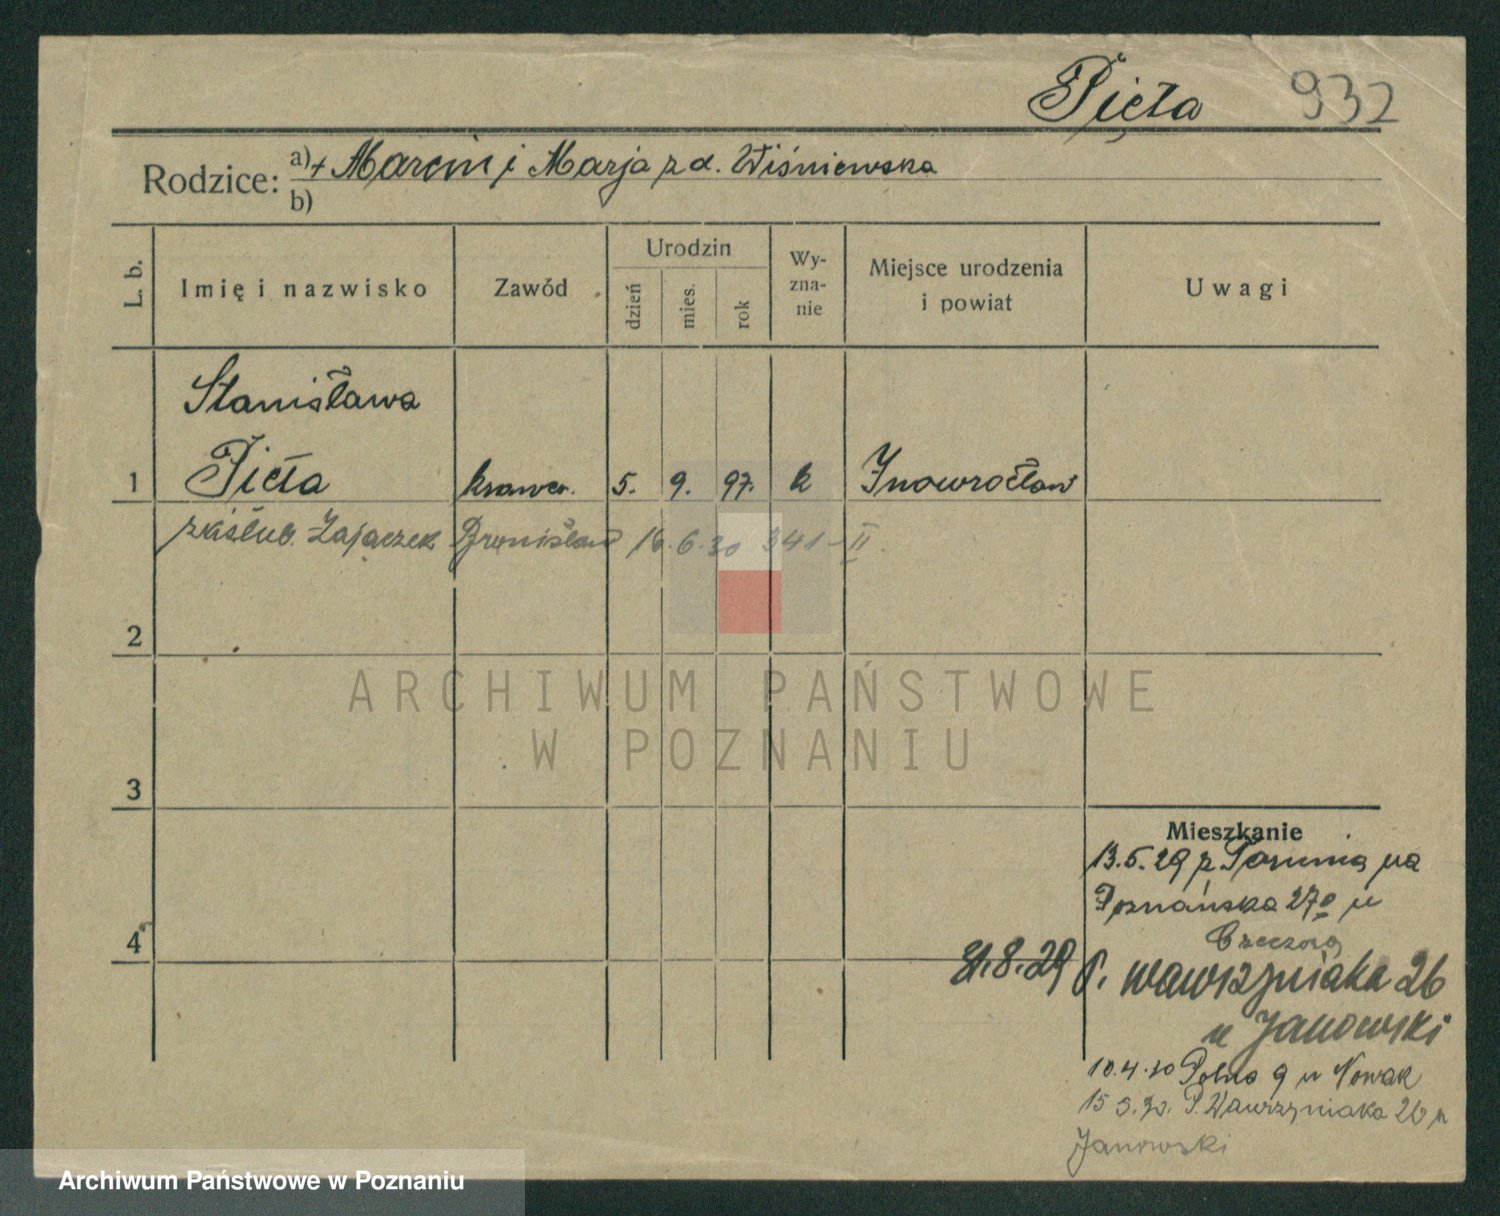 Pięta 932
Rodzice: a) + Marcin i Marja z d. Wiśniewska
b)
L. b. Imię i nazwisko Zawód Urodzin dzień mies. rok Wy-zna-nie Miejsce urodzenia i powiat Uwagi
Stanisława
1 Pięta krawco. 5. 9. 97. k Inowrocław
zaślub. Zajączek Bronisław 16.6.30 341-II
2
ARCHIWUM PAŃSTWOWE
W POZNANIU
3
Mieszkanie
13.5.29 z Torunia na
Poznańska 27 u
4
31.8.29 P. Wawrzyniaka 26
u Janowski
10.4.30 Polna 9 u Nowak
15 5.30. P. Wawrzyniaka 26 u
Janowski
Archiwum Państwowe w Poznaniu